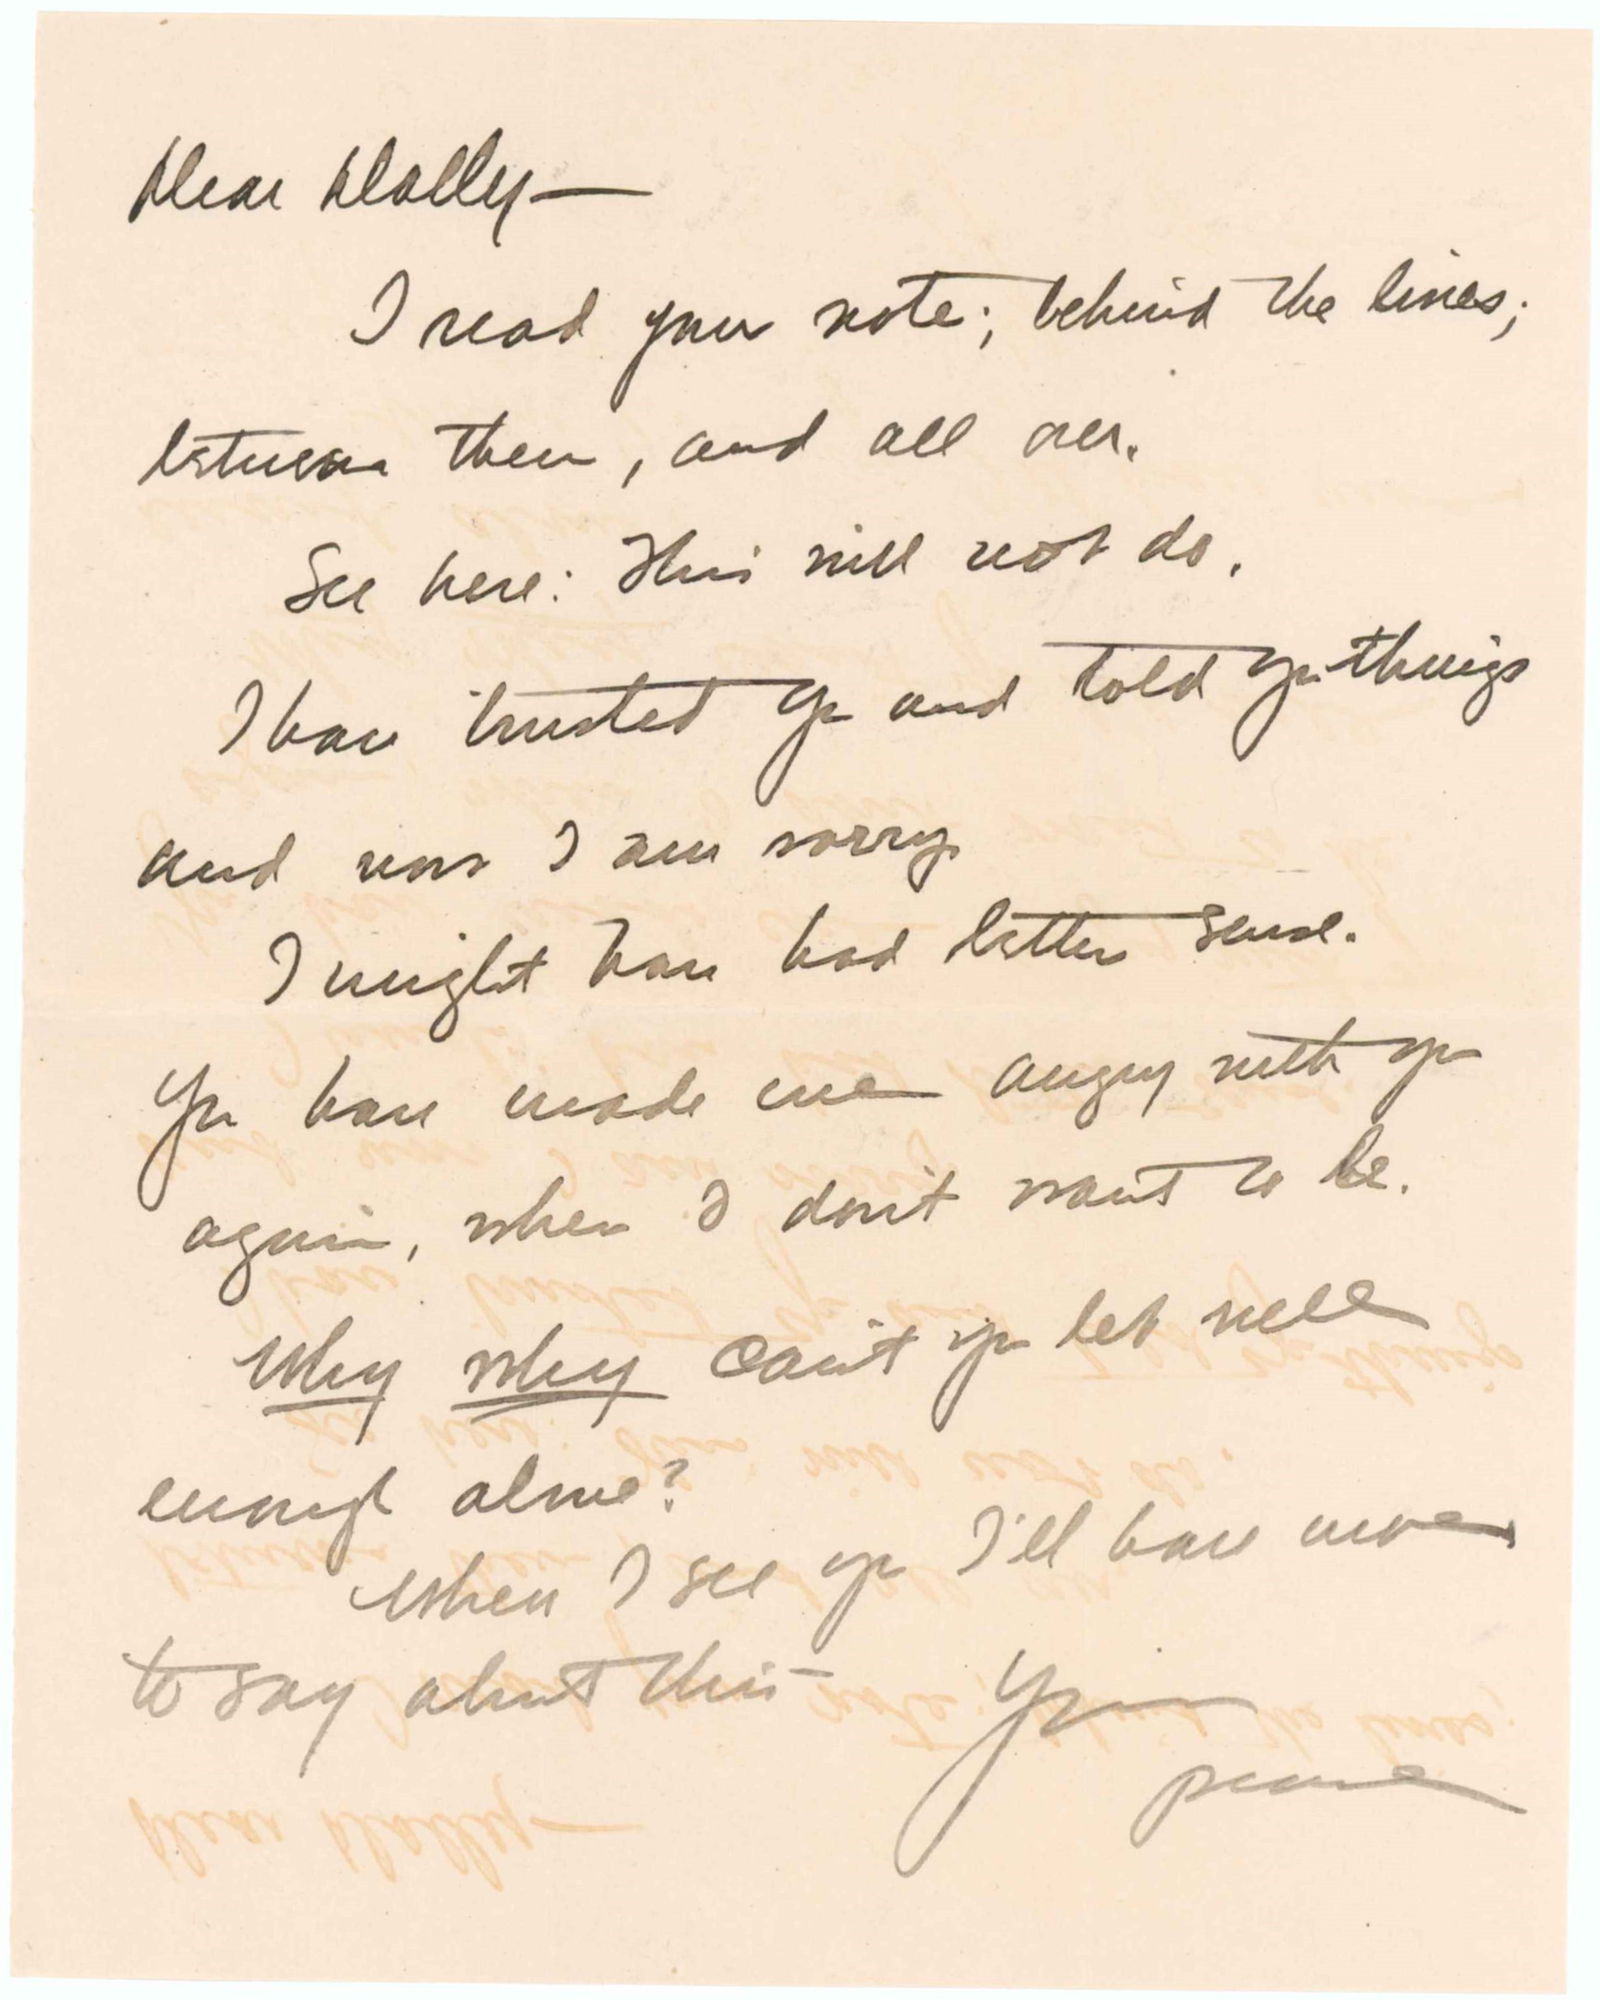 Dear Dolly —
I read your note; behind the lines;
between them, and all over.
See here: This will not do.
I have trusted you and told you things
and now I am sorry.
I might have had better sense.
You have made me angry with you
again, when I don't want to be.
Why why can't you let well
enough alone?
When I see you I'll have more
to say about this –
Your